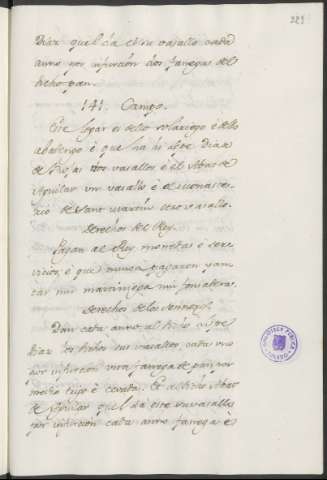 329
Diaz quel da este vasallo cada
anno por infurción dos fanegas del
dicho pan.
141. Campo.
Este logar es dello solariego è dello
abadengo è que ha ii alfre Diaz
de Rojas dos vasallos è el Abat de
Aguilar un vasallo è el monaste-
rio de Sant Martin otro vasallo.
Derechos del Rey.
Pagan al Rey monedas è ser-
vicios è que nunca pagaron yan-
tar nin martiniega nin fonsadera.
Derechos de los Sennores.
Dan cada anno al dicho
Diaz los dichos sus vasallos cada uno
por infurcion una fanega de pan por
medio trigo è cevada. Et al dicho Abat
de Aguilar quel da este su vasallo
por infurcion cada anno fanega è
BIBLIOTECA PUBLICA
TOLEDO